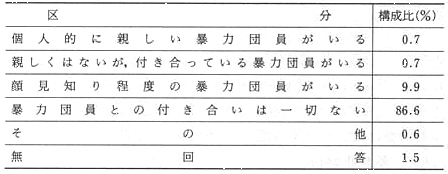 区分 構成比(%)
個人的に親しい暴力団員がいる 0.7
親しくはないが,付き合っている暴力団員がいる 0.7
顔見知り程度の暴力団員がいる 9.9
暴力団員との付き合いは一切ない 86.6
その他 0.6
無回答 1.5